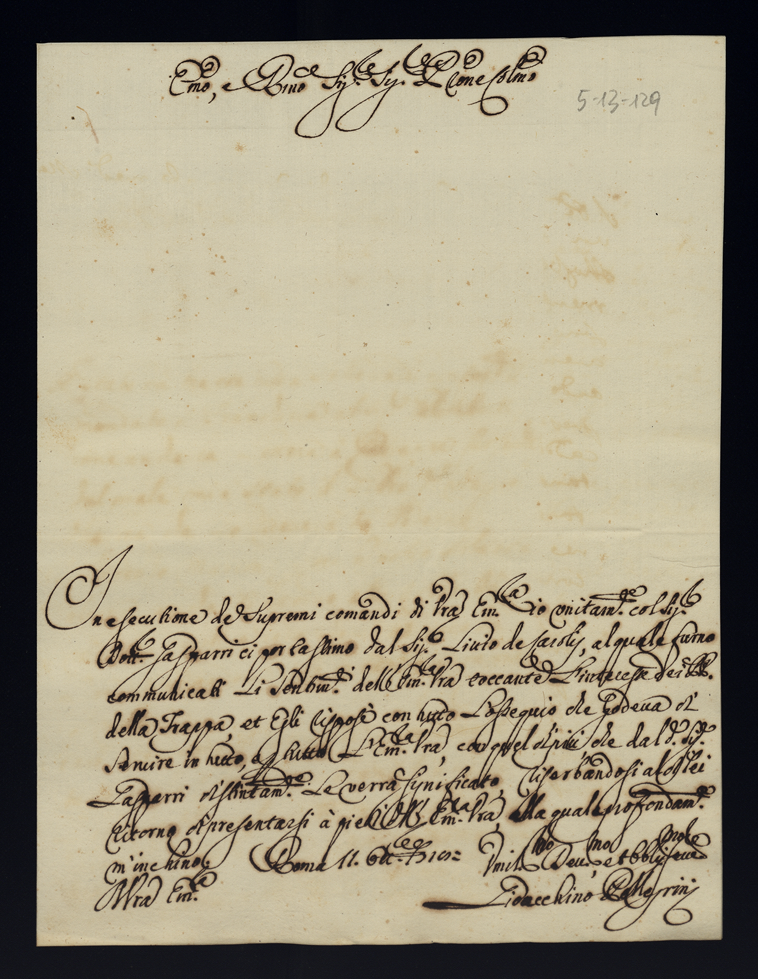 Emo, e Rmo Sig.re Sig.re Prone Colmo
5-13-129
In esecutione de Supremi comandi di Vra Em.za io unitam.te col Sig.r
Dott.r Gasparri ci portassimo dal Sig.r Livio de Carolis, al quale furno
communicati li sentim.ti dell'Em.za Vra toccante l'interesse dei PP.
della Trappa, et Egli rispose con tutto l'ossequio che godeva di
servire in tutto, e tutto l'Em.za Vra, con quel di più che dal d.o Sig.r
Gasparri distintam.te le verrà significato, riserbandosi al di lei
ritorno di presentarsi à piedi dell'Em.za Vra, alla quale profondam.te
m'inchino. Roma 11. Ott.re
Vmil.mo Dev.mo et Obblig.mo
Dell'Em.za Vra
Gioacchino Pellegrini